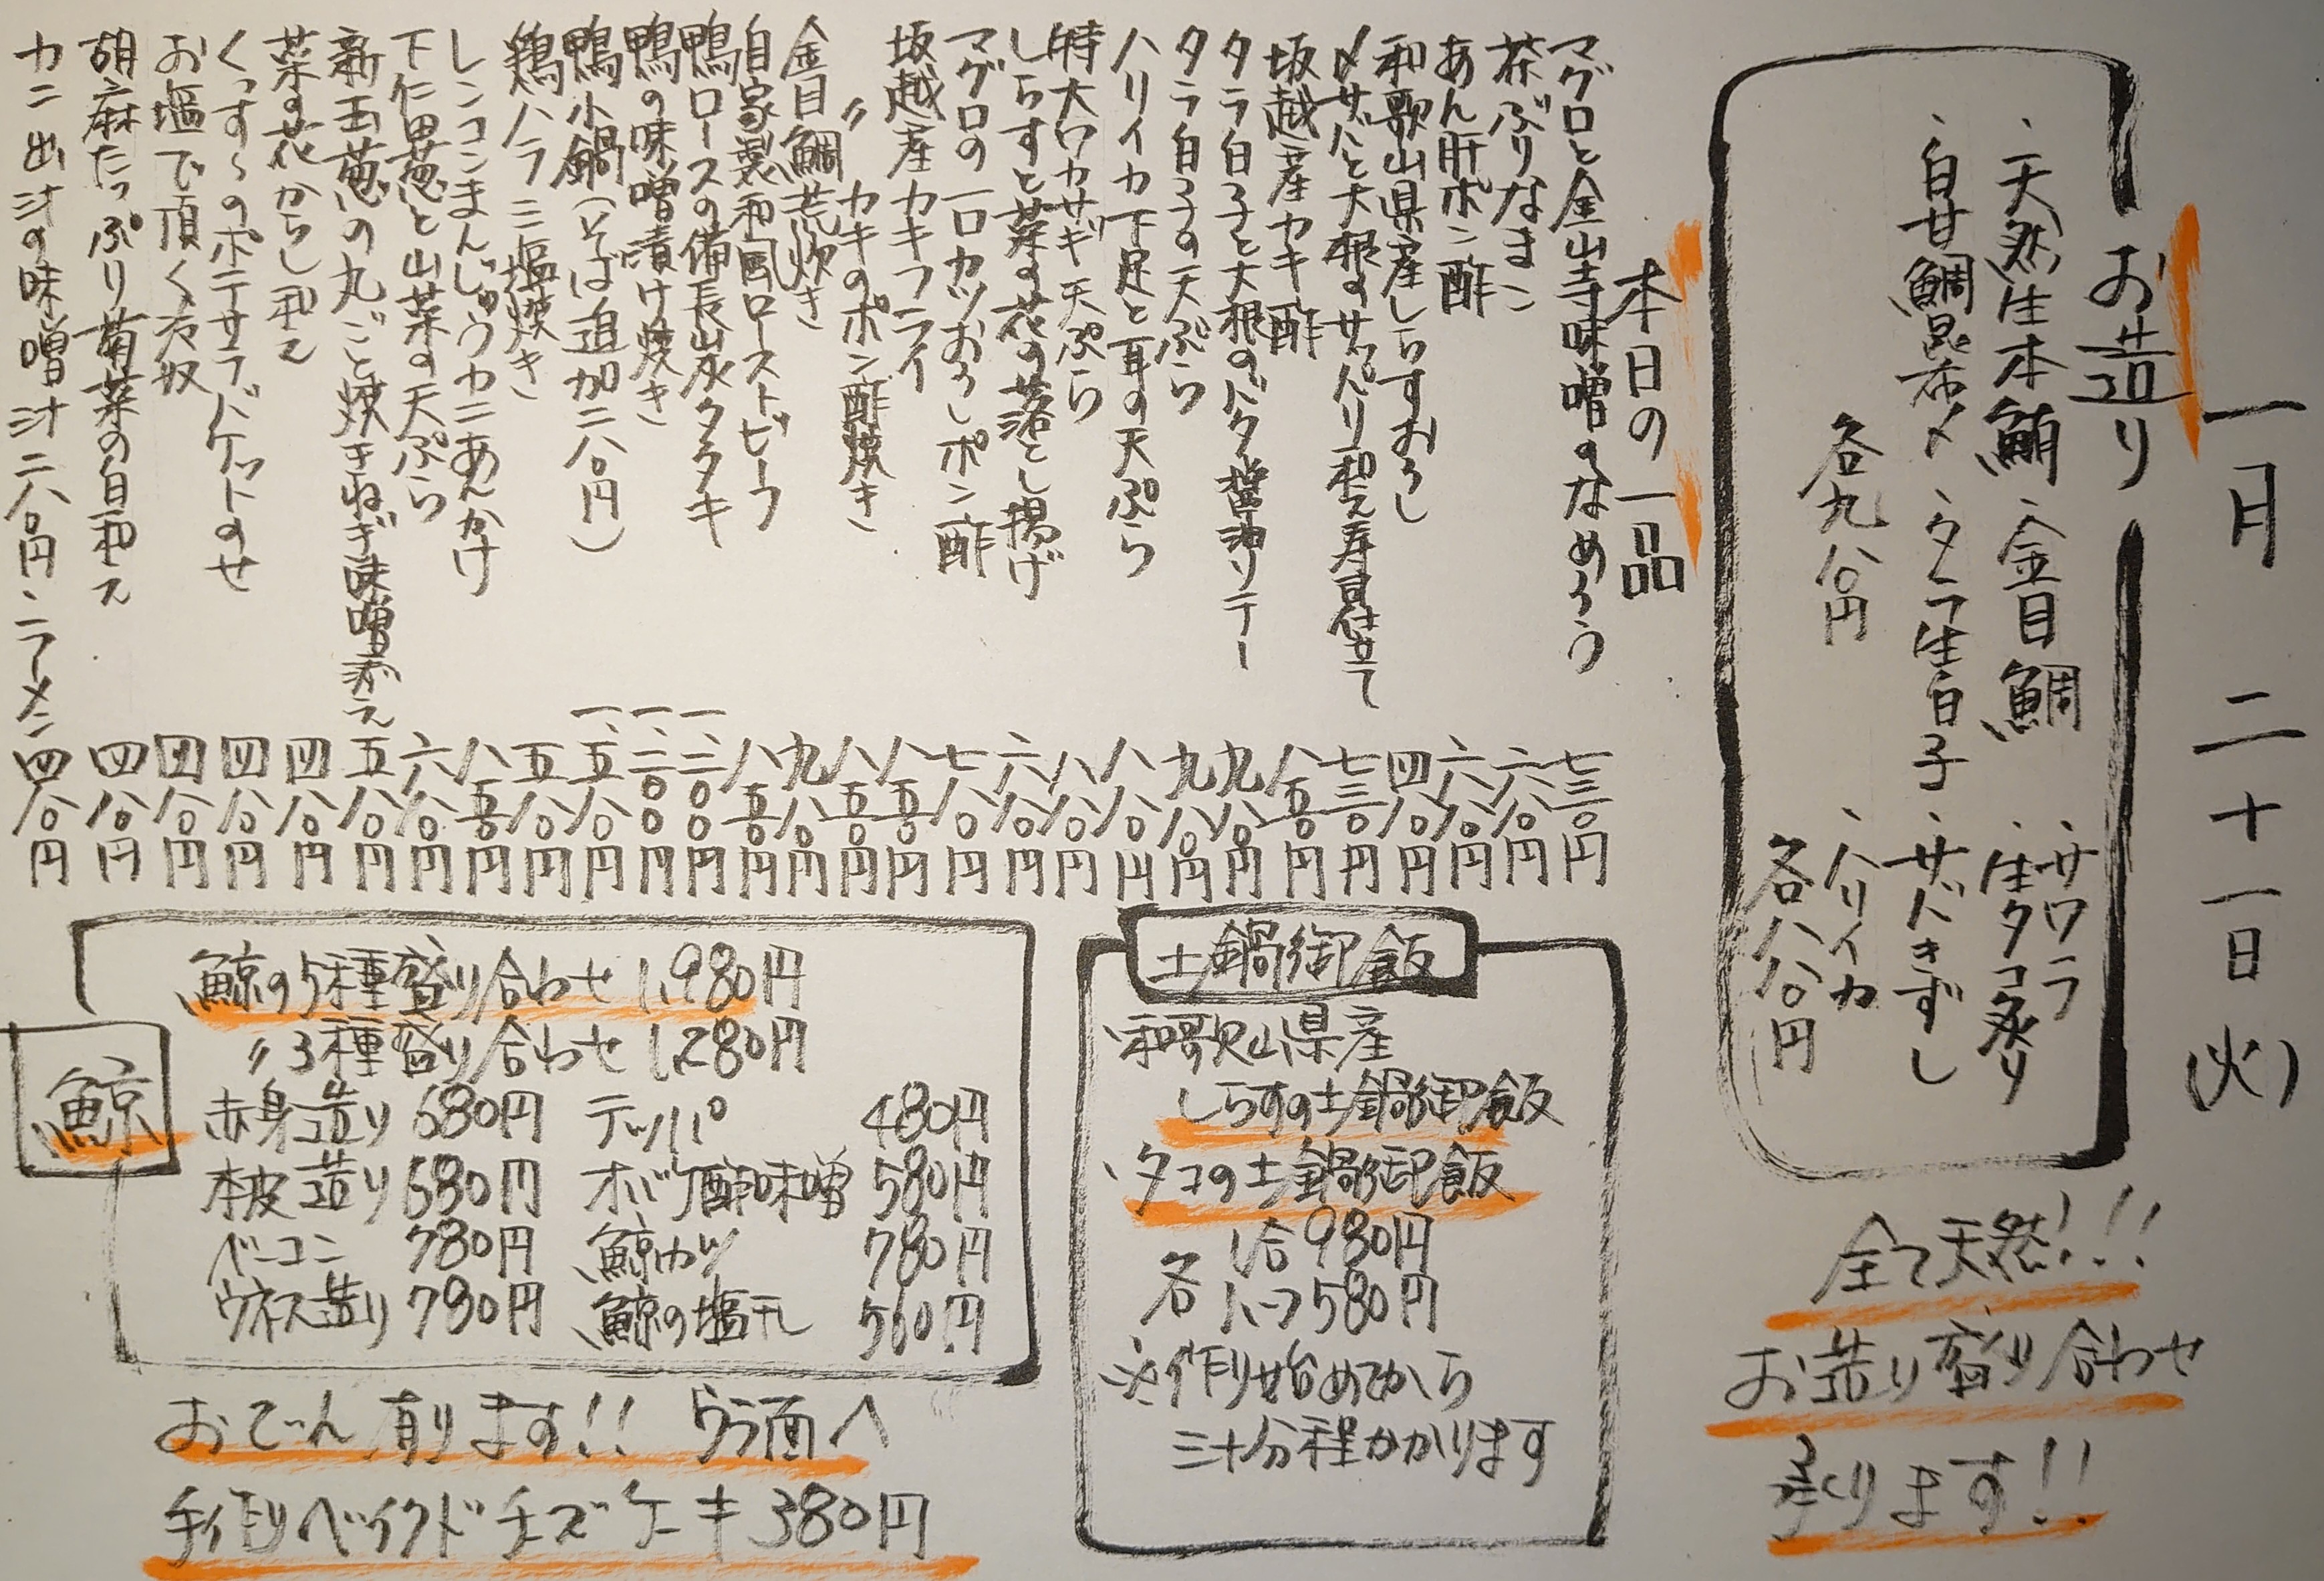 一月 二十一日(火)
お造り
・天然生本鮪 ・金目鯛 ・サワラ
・生タコ炙り
・白甘鯛昆布〆 ・タラ生白子 ・サバきずし
・ハリイカ
各九八〇円
各八八〇円
全て天然!!!
お造り盛り合わせ
承ります!!
本日の一品
マグロと金山寺味噌のなめろう 七三〇円
茶ぶりなまこ 六八〇円
あん肝ポン酢 六八〇円
和歌山県産しらすおろし 四八〇円
〆サバと大根のサッパリ和え寿司仕立て 七三〇円
坂越産カキ酢 八五〇円
タラ白子と大根のバター醤油ソテー 九八〇円
タラ白子の天ぷら 九八〇円
ハリイカ下足と耳の天ぷら 八八〇円
特大ワカサギ天ぷら 八八〇円
しらすと菜の花の落とし揚げ 六八〇円
マグロの一口カツおろしポン酢 七八〇円
坂越産カキフライ 八五〇円
〃 カキのポン酢焼き 八五〇円
金目鯛荒炊き 九八〇円
自家製和風ローストビーフ 八五〇円
鴨ロースの備長炭タタキ 一、三〇〇円
鴨の味噌漬け焼き 一、三〇〇円
鴨小鍋(そば追加二八〇円) 一、五八〇円
鶏ハラミ塩焼き 五八〇円
レンコンまんじゅうカニあんかけ 八五〇円
下仁田葱と山菜の天ぷら 六八〇円
新玉葱の丸ごと焼きねぎ味噌添え 五八〇円
菜の花からし和え 四八〇円
くっすぅのポテサラバケットのせ 四八〇円
お塩で頂く冷奴 四八〇円
胡麻たっぷり菊菜の白和え 四八〇円
カニ出汁の味噌汁二八〇円・ラーメン 四八〇円
土鍋御飯
・和歌山県産
しらすの土鍋御飯
・タコの土鍋御飯
各 1合980円
ハーフ580円
※作り始めてから
三十分程かかります
鯨
鯨の5種盛り合わせ 1,980円
〃3種盛り合わせ 1,280円
赤身造り 680円 テッパ 480円
本皮造り 680円 オバケ酢味噌 580円
ベーコン 780円 鯨カツ 780円
ウネス造り 780円 鯨の塩干し 560円
おでん有ります!! ウラ面へ
手作りベイクドチーズケーキ 380円